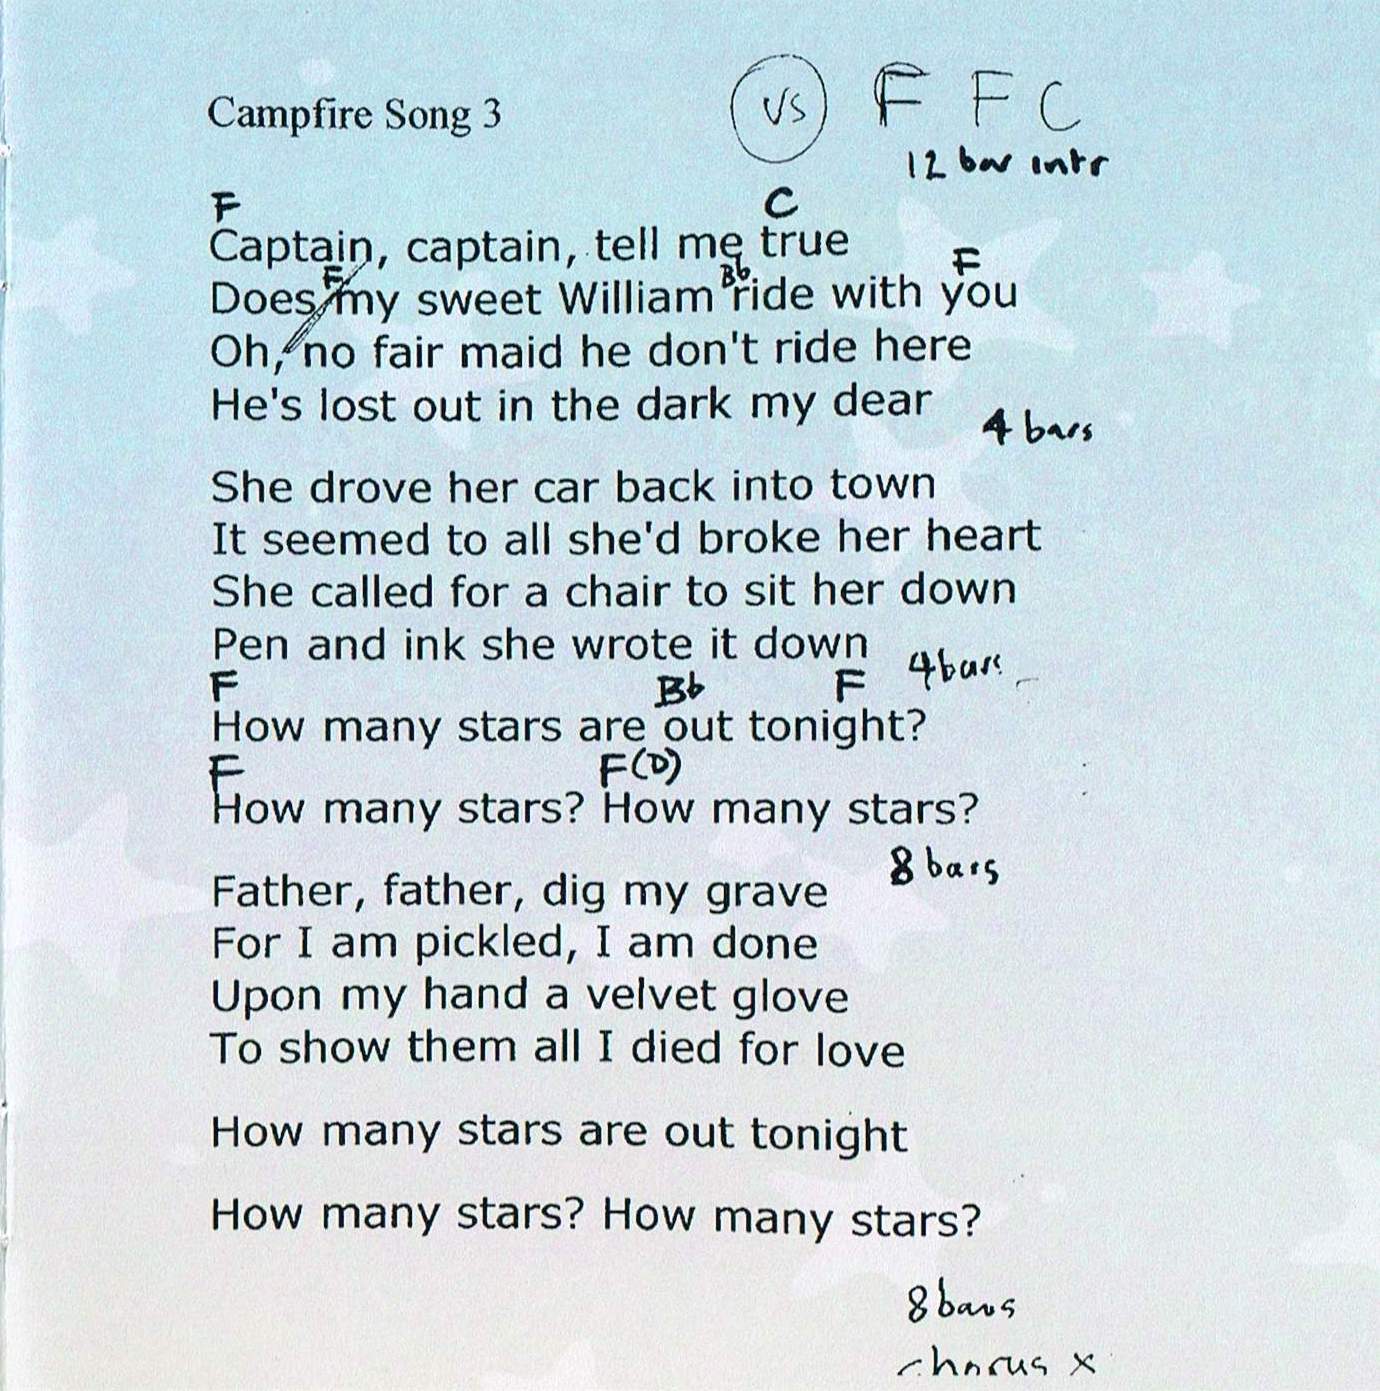 Campfire Song 3 VS F F C
12 bar intr
F C
Captain, captain, tell me true
F Bb F
Does my sweet William ride with you
Oh, no fair maid he don't ride here
He's lost out in the dark my dear
4 bars
She drove her car back into town
It seemed to all she'd broke her heart
She called for a chair to sit her down
Pen and ink she wrote it down
4 bars
F Bb F
How many stars are out tonight?
F F(D)
How many stars? How many stars?
8 bars
Father, father, dig my grave
For I am pickled, I am done
Upon my hand a velvet glove
To show them all I died for love
How many stars are out tonight
How many stars? How many stars?
8 bars
chorus x